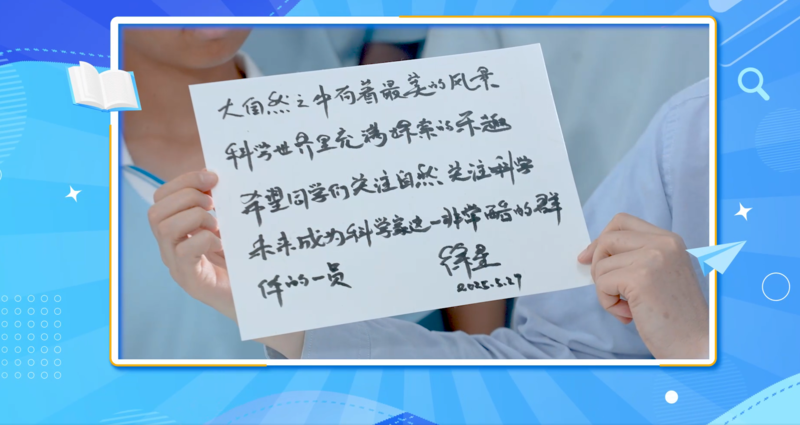 大自然之中有着最美的风景
科学世界里充满探索的乐趣
希望同学们关注自然 关注科学
未来成为科学家这一非常酷的群
体的一员
徐星
2025.5.27